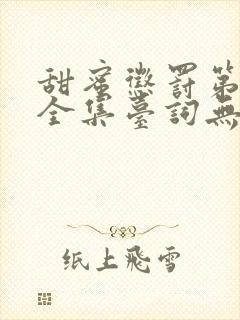 甜蜜懲罰第
全集臺詞無
纸上飛雪